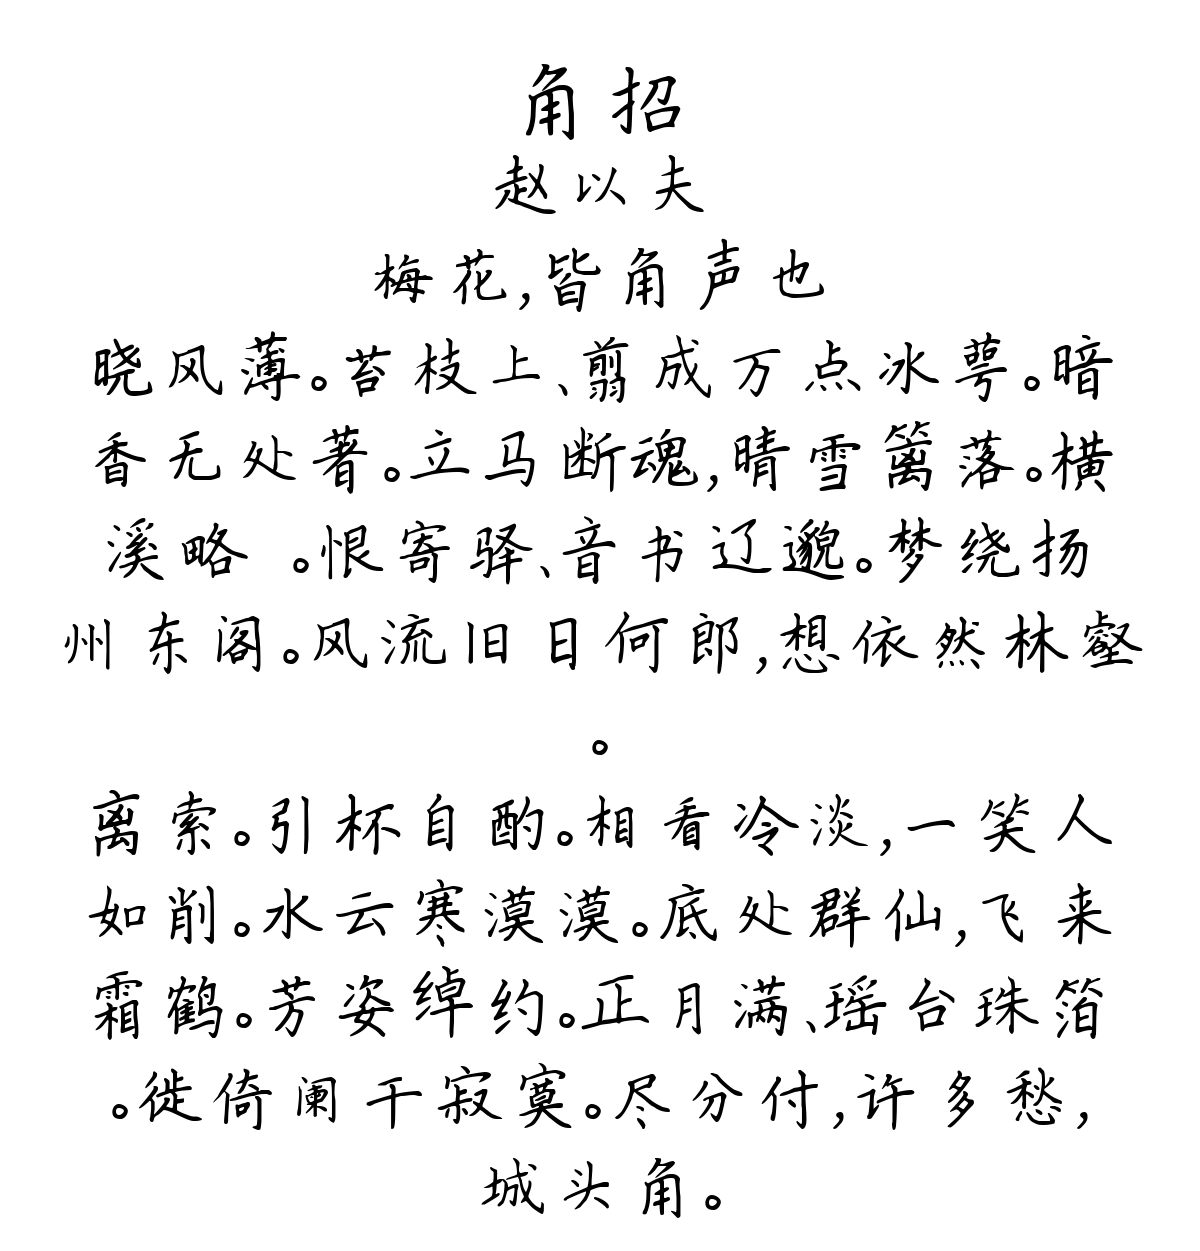 角招
赵以夫
梅花,皆角声也
晓风薄。苔枝上、翦成万点冰萼。暗
香无处著。立马断魂,晴雪篱落。横
溪略 。恨寄驿、音书辽邈。梦绕扬
州东阁。风流旧日何郎,想依然林壑
。
离索。引杯自酌。相看冷淡,一笑人
如削。水云寒漠漠。底处群仙,飞来
霜鹤。芳姿绰约。正月满、瑶台珠箔
。徙倚阑干寂寞。尽分付,许多愁,
城头角。